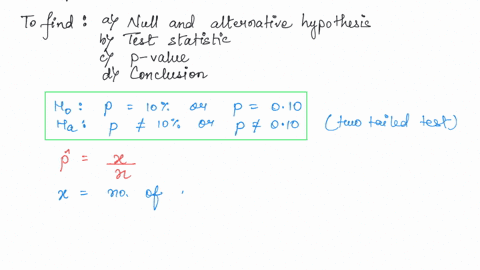 To find : a) Null and alternative hypothesis
b) Test statistic
c) p-value
d) Conclusion
H₀ : p = 10% or p = 0.10
Ha : p ≠ 10% or p ≠ 0.10 (two tailed test)
p̂ = x/n
x = no. of